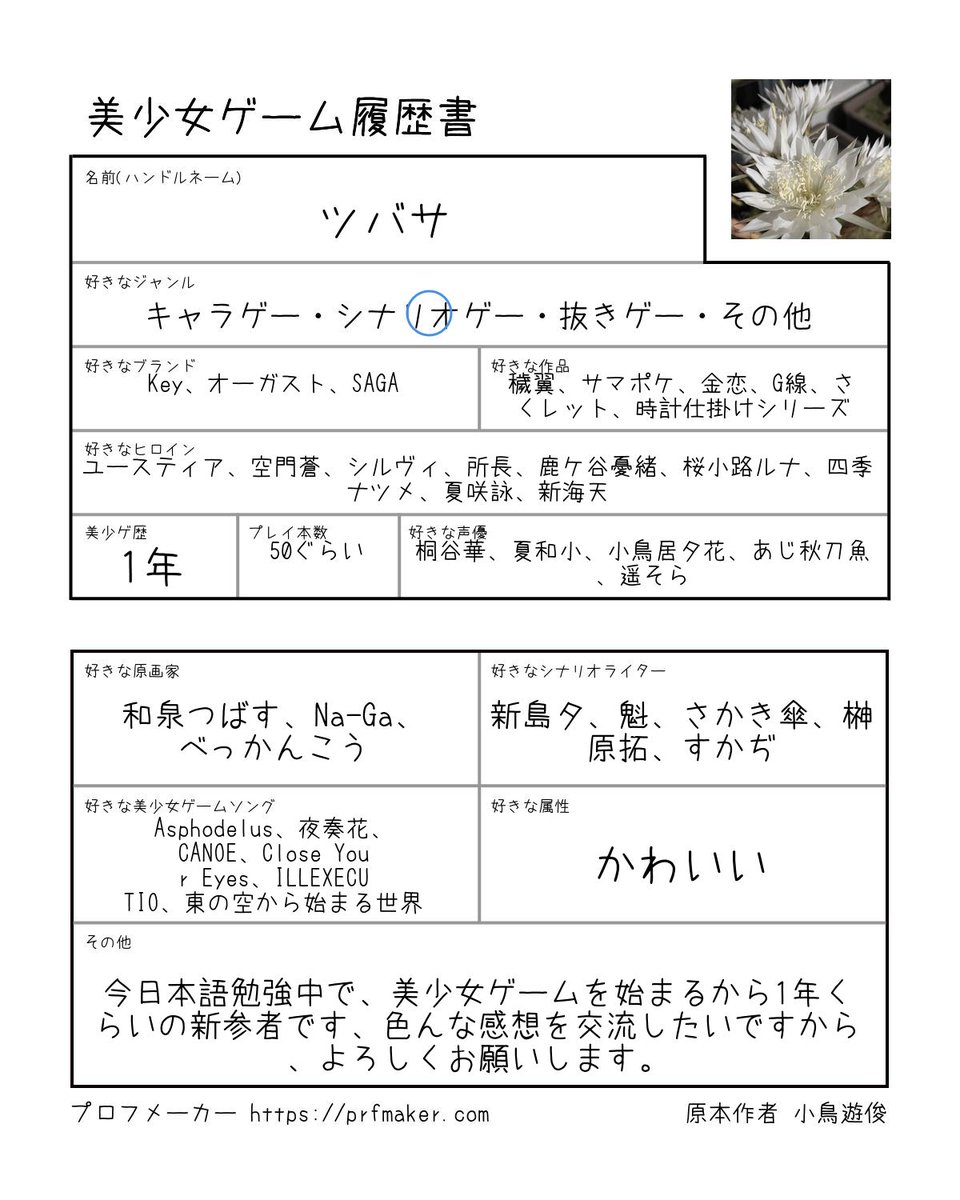 美少女ゲーム履歴書
名前(ハンドルネーム)
ツバサ
好きなジャンル
キャラゲー・シナリオゲー・抜きゲー・その他
好きなブランド
Key、オーガスト、SAGA
好きな作品
穢翼、サマポケ、金恋、G線、さ
くレット、時計仕掛けシリーズ
好きなヒロイン
ユースティア、空門蒼、シルヴィ、所長、鹿ケ谷憂緒、桜小路ルナ、四季
ナツメ、夏咲詠、新海天
美少ゲ歴
1年
プレイ本数
50ぐらい
好きな声優
桐谷華、夏和小、小鳥居夕花、あじ秋刀魚
、遥そら
好きな原画家
和泉つばす、Na-Ga、
べっかんこう
好きなシナリオライター
新島夕、魁、さかき傘、榊
原拓、すかぢ
好きな美少女ゲームソング
Asphodelus、夜奏花、
CANOE、Close You
r Eyes、ILLEXECU
TIO、東の空から始まる世界
好きな属性
かわいい
その他
今日本語勉強中で、美少女ゲームを始まるから1年く
らいの新参者です、色んな感想を交流したいですから
、よろしくお願いします。
プロフメーカー https://prfmaker.com
原本作者 小鳥遊俊